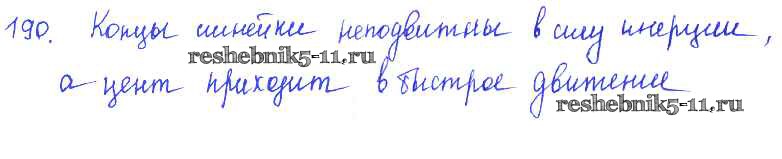 190. Концы линейки неподвижны в силу инерции,
reshebnik5-11.ru
а цент приходит в быстрое движение
reshebnik5-11.ru